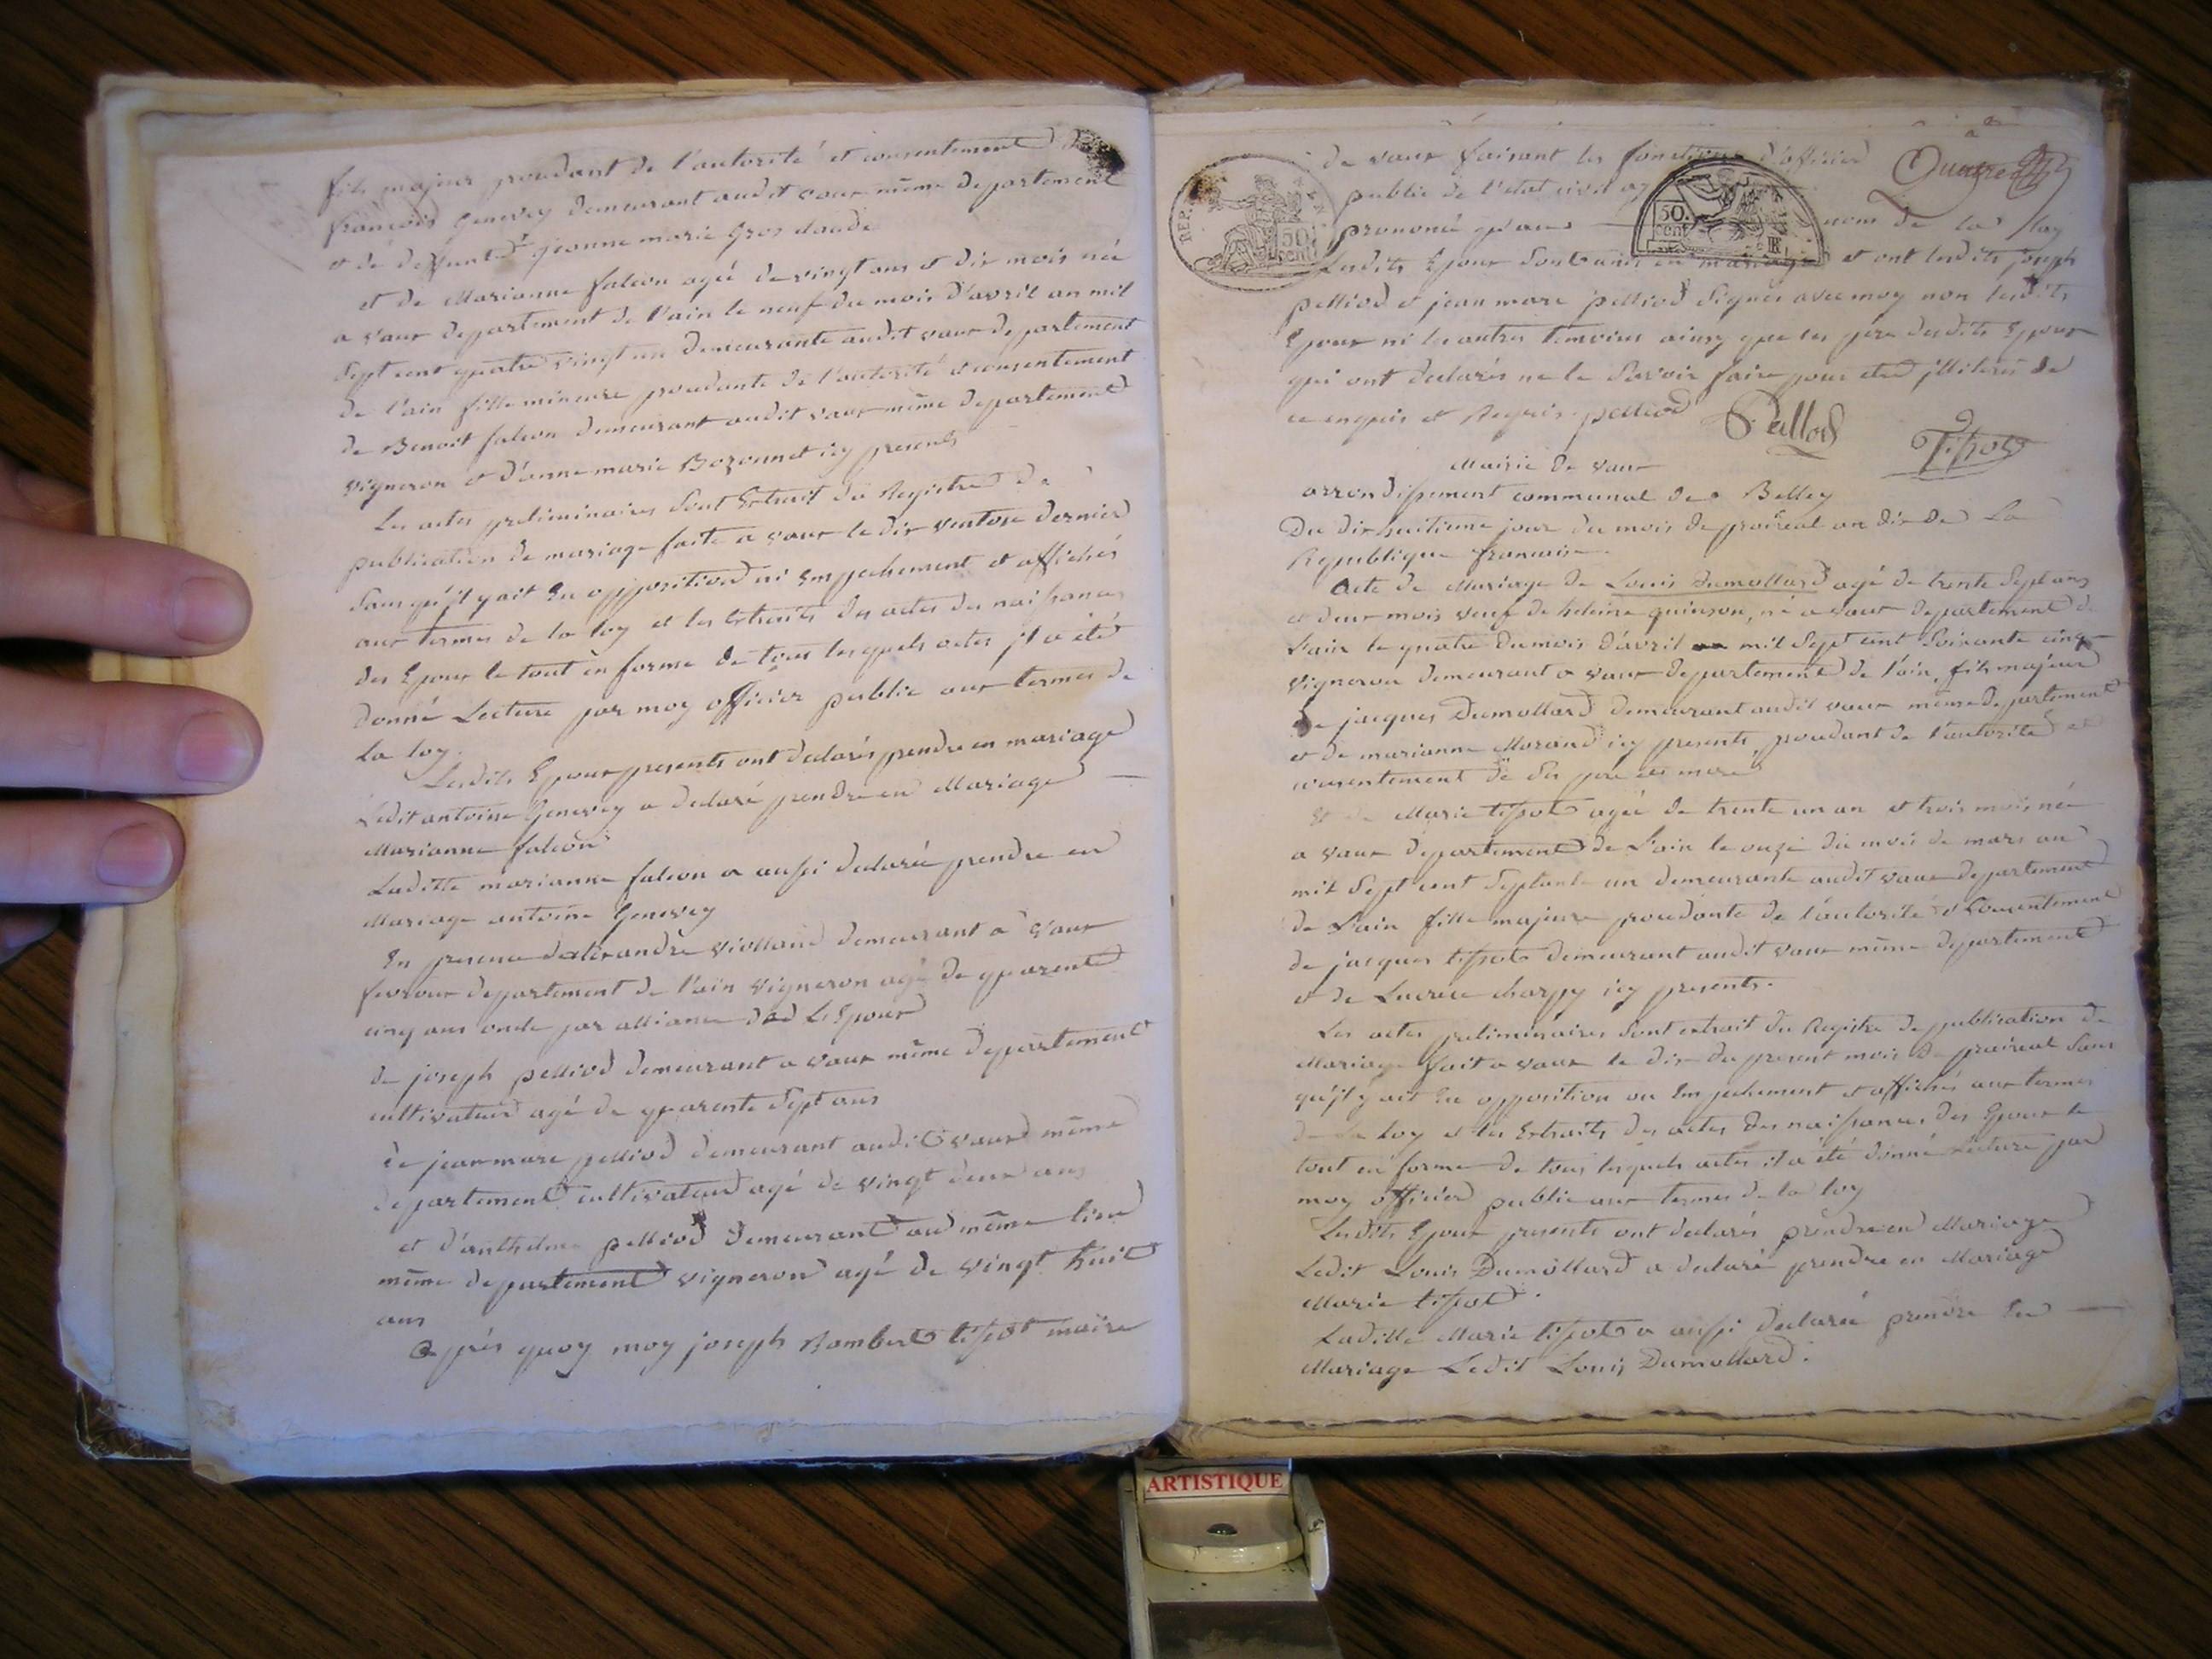 fils majeur proudant de l'autorité et consentement de
françois Genevey demeurant audit vaux même departement
et de deffunte jeanne marie Gros daude
et de Marianne falcon agée de vingt ans et dix mois née
a vaux departement de l'ain le neuf du mois d'avril an mil
sept cent quatre vingt un demeurante audit vaux departement
de l'ain fille mineure proudante de l'autorité et consentement
de Benoit falcon demeurant audit vaux même departement
vigneron et d'anne marie Bozonnet icy presents
Les actes preliminaires sont Extrait du Registre de
publication de mariage faite a vaux le dix ventose dernier
sans qu'jl y ait Eu opposition ni Empechement et affichés
aux termes de la loy et les Extraits des actes des naissances
des Epoux le tout en forme de tous lesquels actes jl a été
donné Lecture par moy officier public aux termes de
la loy.
Lesdits Epoux presents ont declarés prendre en mariage
Ledit antoine Genevey a declaré prendre en Mariage
Marianne falcon
Laditte marianne falcon a aussi declarée prendre en
Mariage antoine Genevey
En presence d'alexandre Violland demeurant a Vaux
fevroux departement de l'ain vigneron agé de quarente
cinq ans oncle par alliance L'Epoux
de joseph pelliod demeurant a vaux même departement
cultivateur agé de quarente sept ans
de jean marc pelliod demeurant audit vaux même
departement cultivateur agé de vingt deux ans
et d'anthelme pelliod demeurant au même lieu
même departement vigneron agé de vingt huit
ans
Après quoy moy joseph Rambert tissot maire
Quatre
de vaux faisant les fonctions d'officier
public de l'etat civil
prononcé qu'au nom de la loy
Lesdits Epoux sont unis en mariage et ont lesdits joseph
pelliod et jean marc pelliod signés avec moy non lesdits
Epoux ni les autres temoins ainsy que les père desdits Epoux
qui ont declarés ne le savoir faire pour etre jlliterés de
ce enquis et Requis. pelliod Pelliod Tissot
REP. 50 cent
50. cent
Mairie de vaux
arrondissement communal de Belley
Du dix huitieme jour du mois de prairéal an dix de La
Republique francaise.
Acte de Mariage de Louis Dumollard agé de trente sept ans
et deux mois veuf de heleine quinson, né a vaux departement de
L'ain le quatre du mois d'avril mil sept cent soixante cinq
vigneron demeurant a vaux departement de l'ain, fils majeur
de jacques Dumollard demeurant audit vaux même departement
et de marianne Morand icy presents, proudant de l'autorité et
consentement de ses père et mere
Et de Marie tissot agée de trente un an et trois mois née
a vaux departement de L'ain le onze du mois de mars an
mil sept cent septante un demeurante audit vaux departement
de L'ain fille majeure proudante de l'autorité et consentement
de jacques tissot demeurant audit vaux même departement
et de Lucrece charpy icy presents.
Les actes preliminaires sont extrait du Registre de publication de
Mariage fait a vaux le dix du present mois de prairéal sans
qu'jl y ait Eu opposition ou Empechement et affichés aux termes
de la loy et les Extraits des actes des naissances des Epoux le
tout en forme de tous lesquels actes il a été donné Lecture par
moy officier public aux termes de la loy
Lesdits Epoux presents ont declarés prendre en Mariage
Ledit Louis Dumollard a declaré prendre en Mariage
Marie tissot.
Laditte Marie tissot a aussi declarée prendre En
Mariage Ledit Louis Dumollard.
ARTISTIQUE